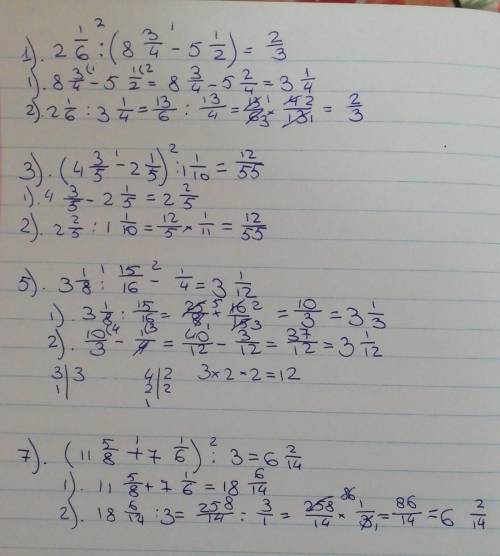 1). 2 1/6 :² (8 3/4 -¹ 5 1/2) = 2/3
1). 8 3/4⁽¹ - 5 1/2⁽² = 8 3/4 - 5 2/4 = 3 1/4
2). 2 1/6 : 3 1/4 = 13/6 : 13/4 = 13¹/6₃ × 4²/13₁ = 2/3
3). (4 3/5 -¹ 2 1/5) :² 1 1/10 = 12/55
1). 4 3/5 - 2 1/5 = 2 2/5
2). 2 2/5 : 1 1/10 = 12/5 × 1/11 = 12/55
5). 3 1/8 :¹ 15/16 -² 1/4 = 3 1/12
1). 3 1/8 : 15/16 = 25⁵/8₁ × 16²/15₃ = 10/3 = 3 1/3
2). 10/3⁽⁴ - 1/4⁽³ = 40/12 - 3/12 = 37/12 = 3 1/12
3|3 4|2 3×2×2=12
1| 2|2
1
7). (11 5/8 +¹ 7 1/6) :² 3 = 6 2/14
1). 11 5/8 + 7 1/6 = 18 6/14
2). 18 6/14 : 3 = 258/14 : 3/1 = 258⁸⁶/14 × 1/3₁ = 86/14 = 6 2/14